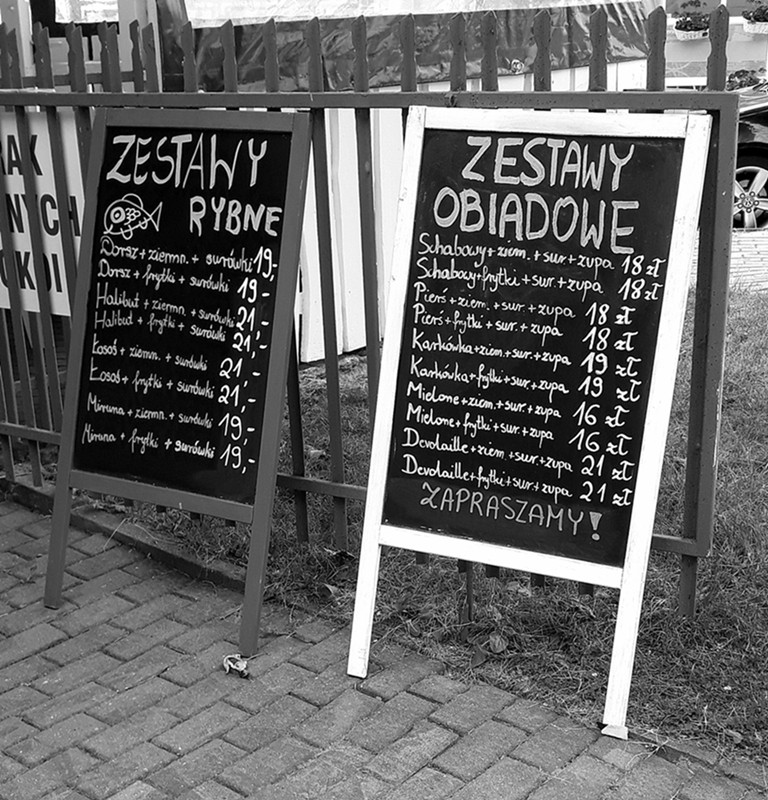 ZESTAWY
RYBNE
Dorsz + ziemn. + surówki 19,-
Dorsz + frytki + surówki 19,-
Halibut + ziemn. + surówki 21,-
Halibut + frytki + surówki 21,-
Łosoś + ziemn. + surówki 21,-
Łosoś + frytki + surówki 21,-
Miruna + ziemn. + surówki 19,-
Miruna + frytki + surówki 19,-
ZESTAWY
OBIADOWE
Schabowy + ziem. + sur + zupa 18 zł
Schabowy + frytki + sur. + zupa 18 zł
Pierś + ziem. + sur. + zupa 18 zł
Pierś + frytki + sur. + zupa 18 zł
Karkówka + ziem. + sur. + zupa 19 zł
Karkówka + frytki + sur. + zupa 19 zł
Mielone + ziem. + sur. + zupa 16 zł
Mielone + frytki + sur. + zupa 16 zł
Devolaille + ziem. + sur. + zupa 21 zł
Devolaille + frytki + sur. + zupa 21 zł
ZAPRASZAMY!